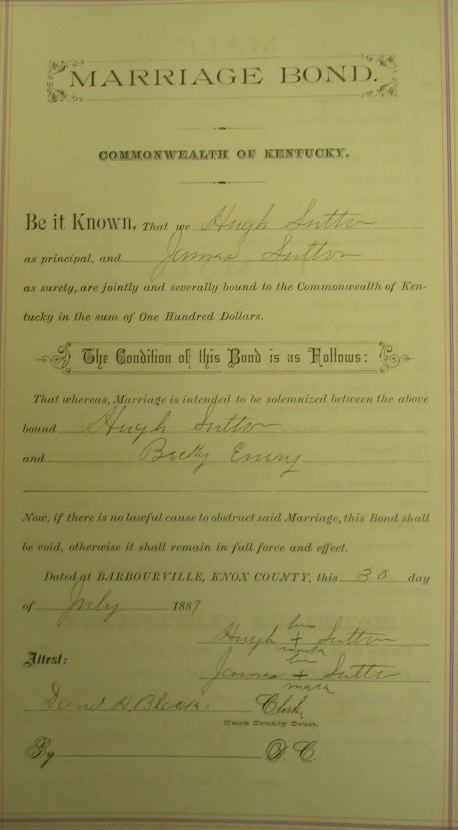 MARRIAGE BOND.
COMMONWEALTH OF KENTUCKY.
Be it Known, That we Hugh Sutton
as principal, and James Sutton
as surety, are jointly and severally bound to the Commonwealth of Ken-
tucky in the sum of One Hundred Dollars.
The Condition of this Bond is as Follows:
That whereas, Marriage is intended to be solemnized between the above
bound Hugh Sutton
and Becky
Now, if there is no lawful cause to obstruct said Marriage, this Bond shall
be void, otherwise it shall remain in full force and effect.
Dated at BARBOURVILLE, KNOX COUNTY, this 30 day
of July 1889
his
Hugh + Sutton
mark
Attest:
his
James + Sutton
mark
H. Black. Clerk,
Knox County Court.
By D. C.